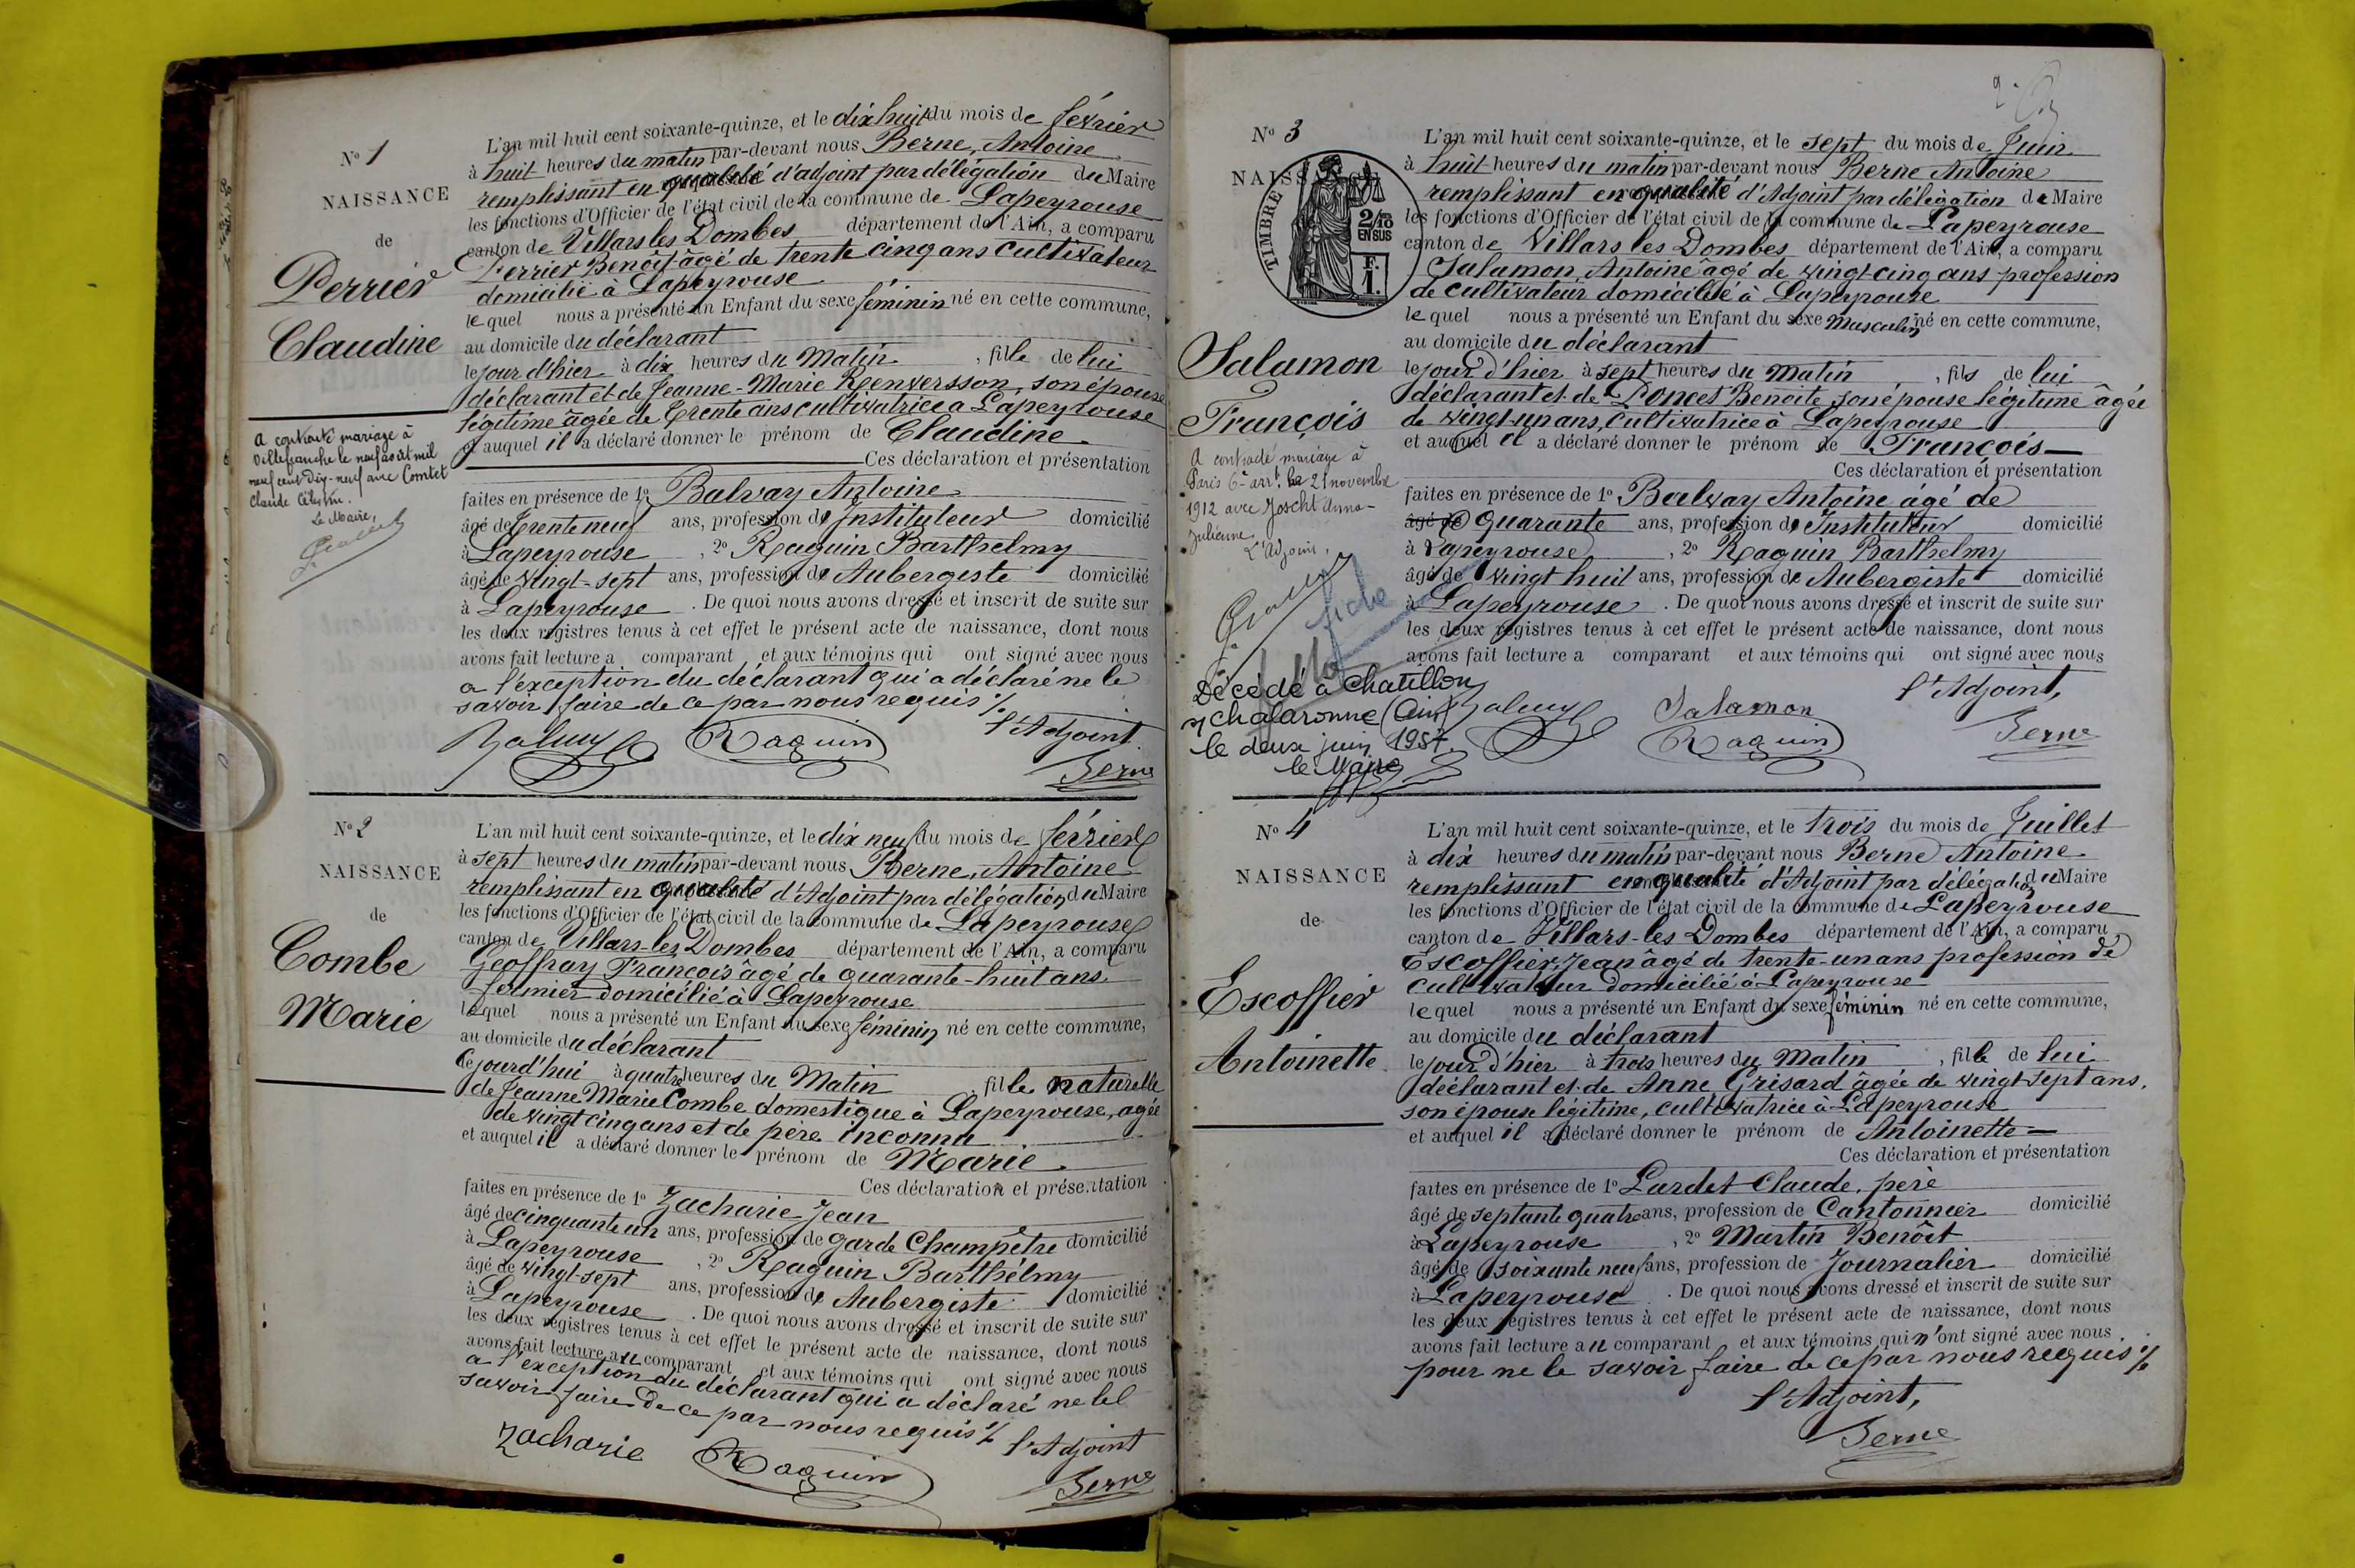 N° 1
NAISSANCE
de
Perrier
Claudine
a contracté mariage à
Villefranche le neuf août mil
neuf cent dix-neuf avec Comtet
Claude Célestin.
Le Maire,
L'an mil huit cent soixante-quinze, et le dix huit du mois de février
à huit heures du matin par-devant nous Berne, Antoine
remplissant en qualité d'adjoint par délégation du Maire
les fonctions d'Officier de l'état civil de la commune de Lapeyrouse
canton de Villars les Dombes département de l'Ain, a comparu
Perrier Benoît âgé de trente cinq ans cultivateur
domicilié à Lapeyrouse
lequel nous a présenté un Enfant du sexe féminin né en cette commune,
au domicile du déclarant
le jour d'hier à dix heures du Matin, fille de lui
déclarant et de Jeanne-Marie Renversson, son épouse
légitime âgée de trente ans cultivatrice a Lapeyrouse
et auquel il a déclaré donner le prénom de Claudine
Ces déclaration et présentation
faites en présence de 1° Balvay Antoine
âgé de trente neuf ans, profession de Instituteur domicilié
à Lapeyrouse, 2° Raquin Barthelmy
âgé de vingt-sept ans, profession de Aubergiste domicilié
à Lapeyrouse. De quoi nous avons dressé et inscrit de suite sur
les deux registres tenus à cet effet le présent acte de naissance, dont nous
avons fait lecture a comparant et aux témoins qui ont signé avec nous
a l'exception du déclarant qui a déclaré ne le
savoir faire de ce par nous requis ./.
Balvay Raquin l'Adjoint
Berne
N° 2
NAISSANCE
de
Combe
Marie
L'an mil huit cent soixante-quinze, et le dix neuf du mois de février
à sept heures du matin par-devant nous Berne, Antoine
remplissant en qualité d'Adjoint par délégation du Maire
les fonctions d'Officier de l'état civil de la commune de Lapeyrouse
canton de Villars-les Dombes département de l'Ain, a comparu
Geoffray François âgé de quarante-huit ans
fermier domicilié à Lapeyrouse
lequel nous a présenté un Enfant du sexe féminin né en cette commune,
au domicile du déclarant
ce jourd'hui à quatre heures du Matin, fille naturelle
de Jeanne Marie Combe domestique à Lapeyrouse, agée
de vingt cinq ans et de père inconnu
et auquel il a déclaré donner le prénom de Marie
Ces déclaration et présentation
faites en présence de 1° Zacharie Jean
âgé de cinquante un ans, profession de garde Champêtre domicilié
à Lapeyrouse, 2° Raquin Barthélmy
âgé de vingt-sept ans, profession de Aubergiste domicilié
à Lapeyrouse. De quoi nous avons dressé et inscrit de suite sur
les deux registres tenus à cet effet le présent acte de naissance, dont nous
avons fait lecture au comparant et aux témoins qui ont signé avec nous
a l'exception du déclarant qui a déclaré ne le
savoir faire de ce par nous requis ./.
Zacharie Raquin l'Adjoint
Berne
2.
N° 3
NAISSANCE
TIMBRE
2/10
EN SUS
F.
1.
Salamon
François
A contracté mariage à
Paris 6e arrt. le 21 novembre
1912 avec Joscht Anna-
Julienne
L'Adjoint,
fiche
Décédé à Chatillon
s/ Chalaronne (Ain)
le deux juin 1957.
le Maire
L'an mil huit cent soixante-quinze, et le sept du mois de Juin
à huit heures du matin par-devant nous Berne Antoine
remplissant en qualité d'Adjoint par délégation de Maire
les fonctions d'Officier de l'état civil de la commune de Lapeyrouse
canton de Villars les Dombes département de l'Ain, a comparu
Salamon Antoine âgé de vingt-cinq ans profession
de cultivateur domicilié à Lapeyrouse
lequel nous a présenté un Enfant du sexe Masculin né en cette commune,
au domicile du déclarant
le jour d'hier à sept heures du Matin, fils de lui
déclarant et de Poncet Benoite son épouse légitime âgée
de vingt-un ans, Cultivatrice à Lapeyrouse
et auquel il a déclaré donner le prénom de François
Ces déclaration et présentation
faites en présence de 1° Balvay Antoine âgé de
âgé de quarante ans, profession de Instituteur domicilié
à Lapeyrouse, 2° Raquin Barthelmy
âgé de vingt huit ans, profession de Aubergiste domicilié
à Lapeyrouse. De quoi nous avons dressé et inscrit de suite sur
les deux registres tenus à cet effet le présent acte de naissance, dont nous
avons fait lecture a comparant et aux témoins qui ont signé avec nous
l'Adjoint,
Balvay Salamon
Raquin Berne
N° 4
NAISSANCE
de
Escoffier
Antoinette
L'an mil huit cent soixante-quinze, et le trois du mois de Juillet
à dix heures du matin par-devant nous Berne Antoine
remplissant en qualité d'Adjoint par délégation du Maire
les fonctions d'Officier de l'état civil de la commune de Lapeyrouse
canton de Villars-les Dombes département de l'Ain, a comparu
Escoffier, Jean âgé de trente-un ans profession de
cultivateur domicilié à Lapeyrouse
lequel nous a présenté un Enfant du sexe féminin né en cette commune,
au domicile du déclarant
le jour d'hier à trois heures du Matin, fille de lui
déclarant et de Anne Grisard âgée de vingt-sept ans,
son épouse légitime, cultivatrice à Lapeyrouse
et auquel il a déclaré donner le prénom de Antoinette
Ces déclaration et présentation
faites en présence de 1° Lardet Claude, père
âgé de septante quatre ans, profession de Cantonnier domicilié
à Lapeyrouse, 2° Martin Benôit
âgé de soixante neuf ans, profession de Journalier domicilié
à Lapeyrouse. De quoi nous avons dressé et inscrit de suite sur
les deux registres tenus à cet effet le présent acte de naissance, dont nous
avons fait lecture au comparant et aux témoins qui n'ont signé avec nous
pour ne le savoir faire de ce par nous requis ./.
l'Adjoint,
Berne